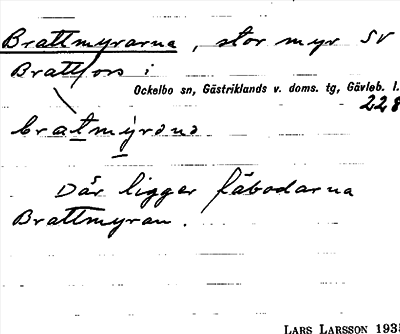 Brattmyrarna, stor myr SV
Brattfors i
Ockelbo sn, Gästriklands v. doms. tg, Gävleb. l.
228
Där ligger fäbodarna
Brattmyran.
LARS LARSSON 193